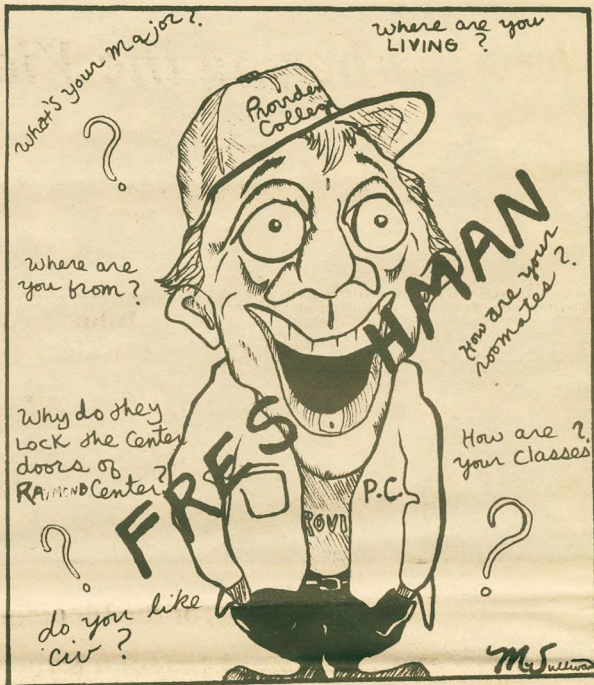 What's your Major?
?
Where are you
LIVING ?
Providen
College
Where are
you from?
FRESHMAN
How are your
roomates ?
Why do they
Lock the Center
doors of
RAYMOND Center?
?
How are ?
your Classes
?
P.C.
ROVI
do you like
civ ?
M Sullivan